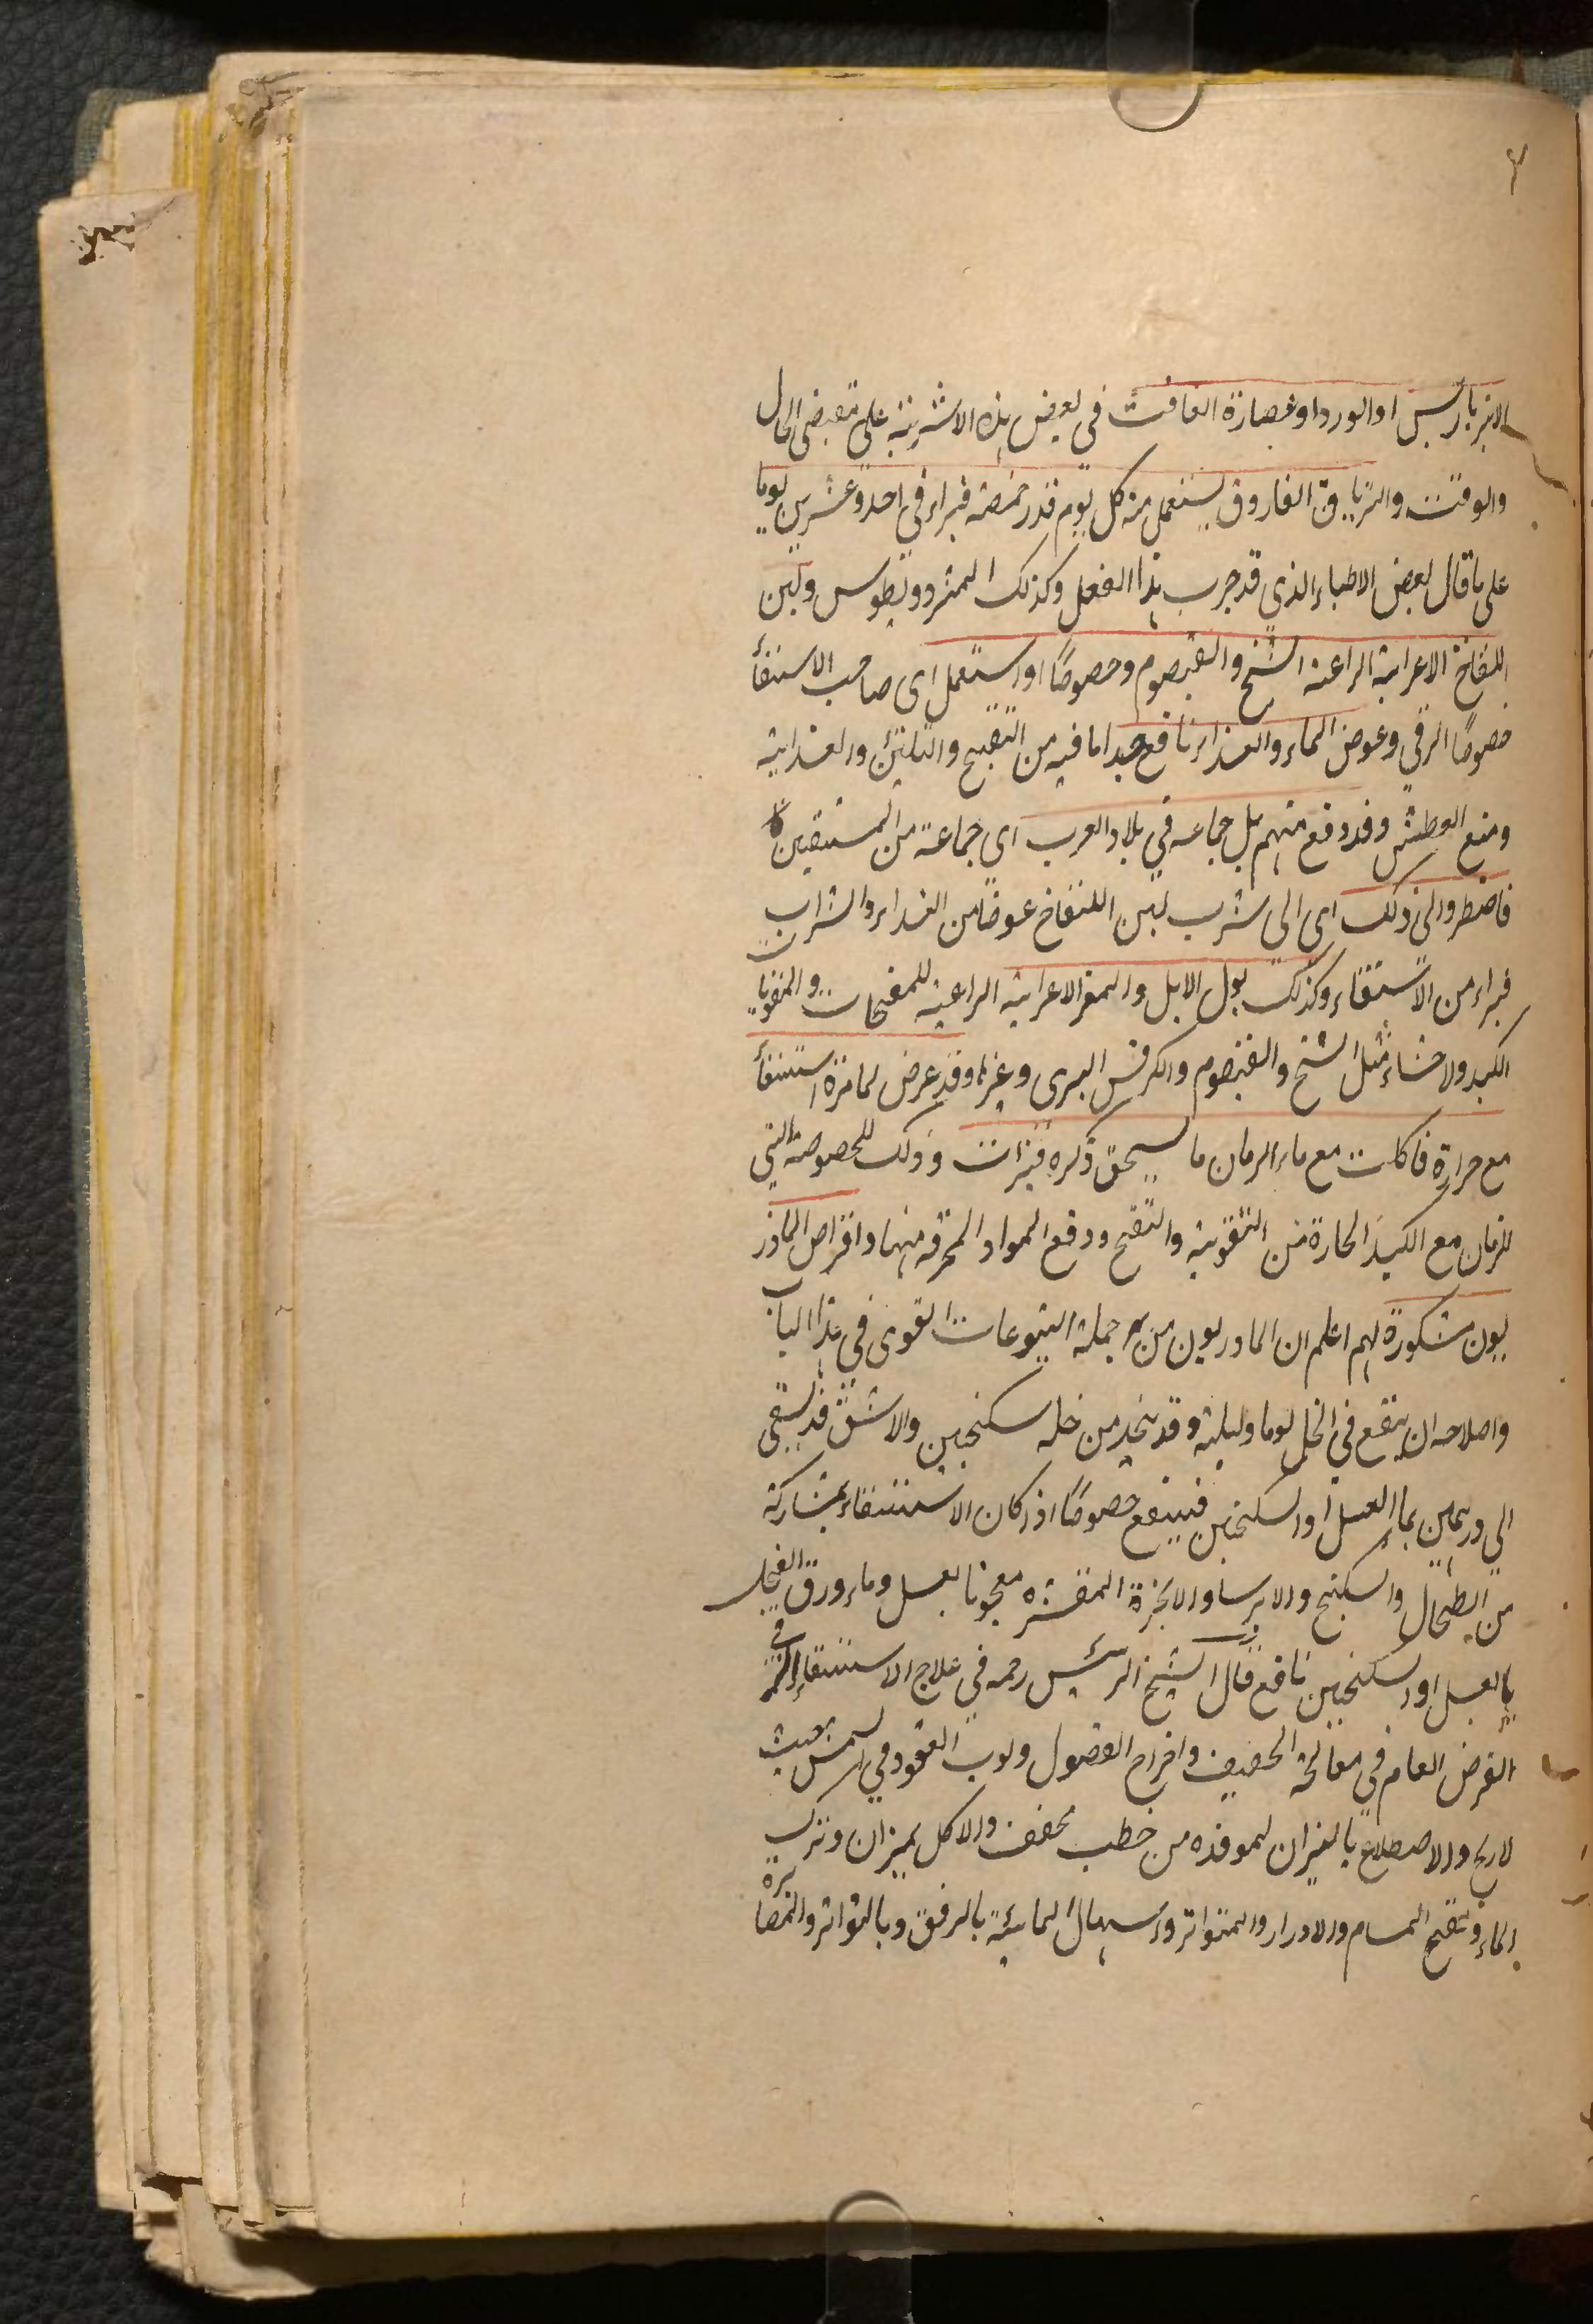 ۴
الانبرباريس او الورد او عصارة الغافث فى بعض هذه الاشربة على مقتضى الحال
والوقت والترياق الفاروق يستعمل منه كل يوم قدر حمصة فبراء فى احد وعشرين يوما
على ما قال بعض الاطباء الذي قد جرب هذا الفعل وكذلك المثرودويطوس ولبن
اللقاح الاعرابية الراعية الشيح والقيصوم وخصوصًا اذا استعمل اى صاحب الاستسقأ
خصوصًا الزقي وعوض الماء والغذاء نافع جدا لما فيه من التفتيح والتليين والغذائية
ومنع العطش وقد دفع منهم بل جماعه في بلاد العرب اى جماعة من المستسقين
فاضطروا الى ذلك اى الى شرب لبن اللقاح عوضًا من الغذاء والشراب
فبراء من الاستسقاء وكذلك بول الابل والمعز الاعرابية الراعية للمفتحات والمقويات
الكبد والاحشاء مثل الشيح والقيصوم والكرفس البرى وغيرها وقد عرض لامرة استسقأ
مع حرارة فاكلت مع ماء الرمان ما يستحق ذكره فبرات وذلك للخصوصة التى
للرمان مع الكبد الحارة من التقوية والتفتح ودفع المواد المحرقة منها واقراص الماذر
يون مشكورة لهم اعلم ان الماذريون من جملة اليتوعات القوى في هذا الباب
واصلاحه ان ينقع فى الخل يوما وليلة وقد يتخذ من خله سكنجبين والاشق قد يسقى
الى درهمين بماء العسل او السكنجبين فينفع خصوصًا اذا كان الاستسقاء بمشاركة
من الطحال والسكبينج والايرسا والانجرة المقشره معجونا بعسل وماء ورق الفجل
بالعسل او السكنجبين نافع قال الشيخ الرئيس رحمه في علاج الاستسقاء الزقى
الغرض العام فى معالجة التجفيف واخراج الفضول ولوب القعود في الشمس حيث
لا ريح والاصطلاء بالنيران الموقده من حطب مجفف والاكل بميزان وترك
الماء وتفتيح المسام والادرار والمتواتر واسهال المائية بالرفق وبالتواتر والمصابرة